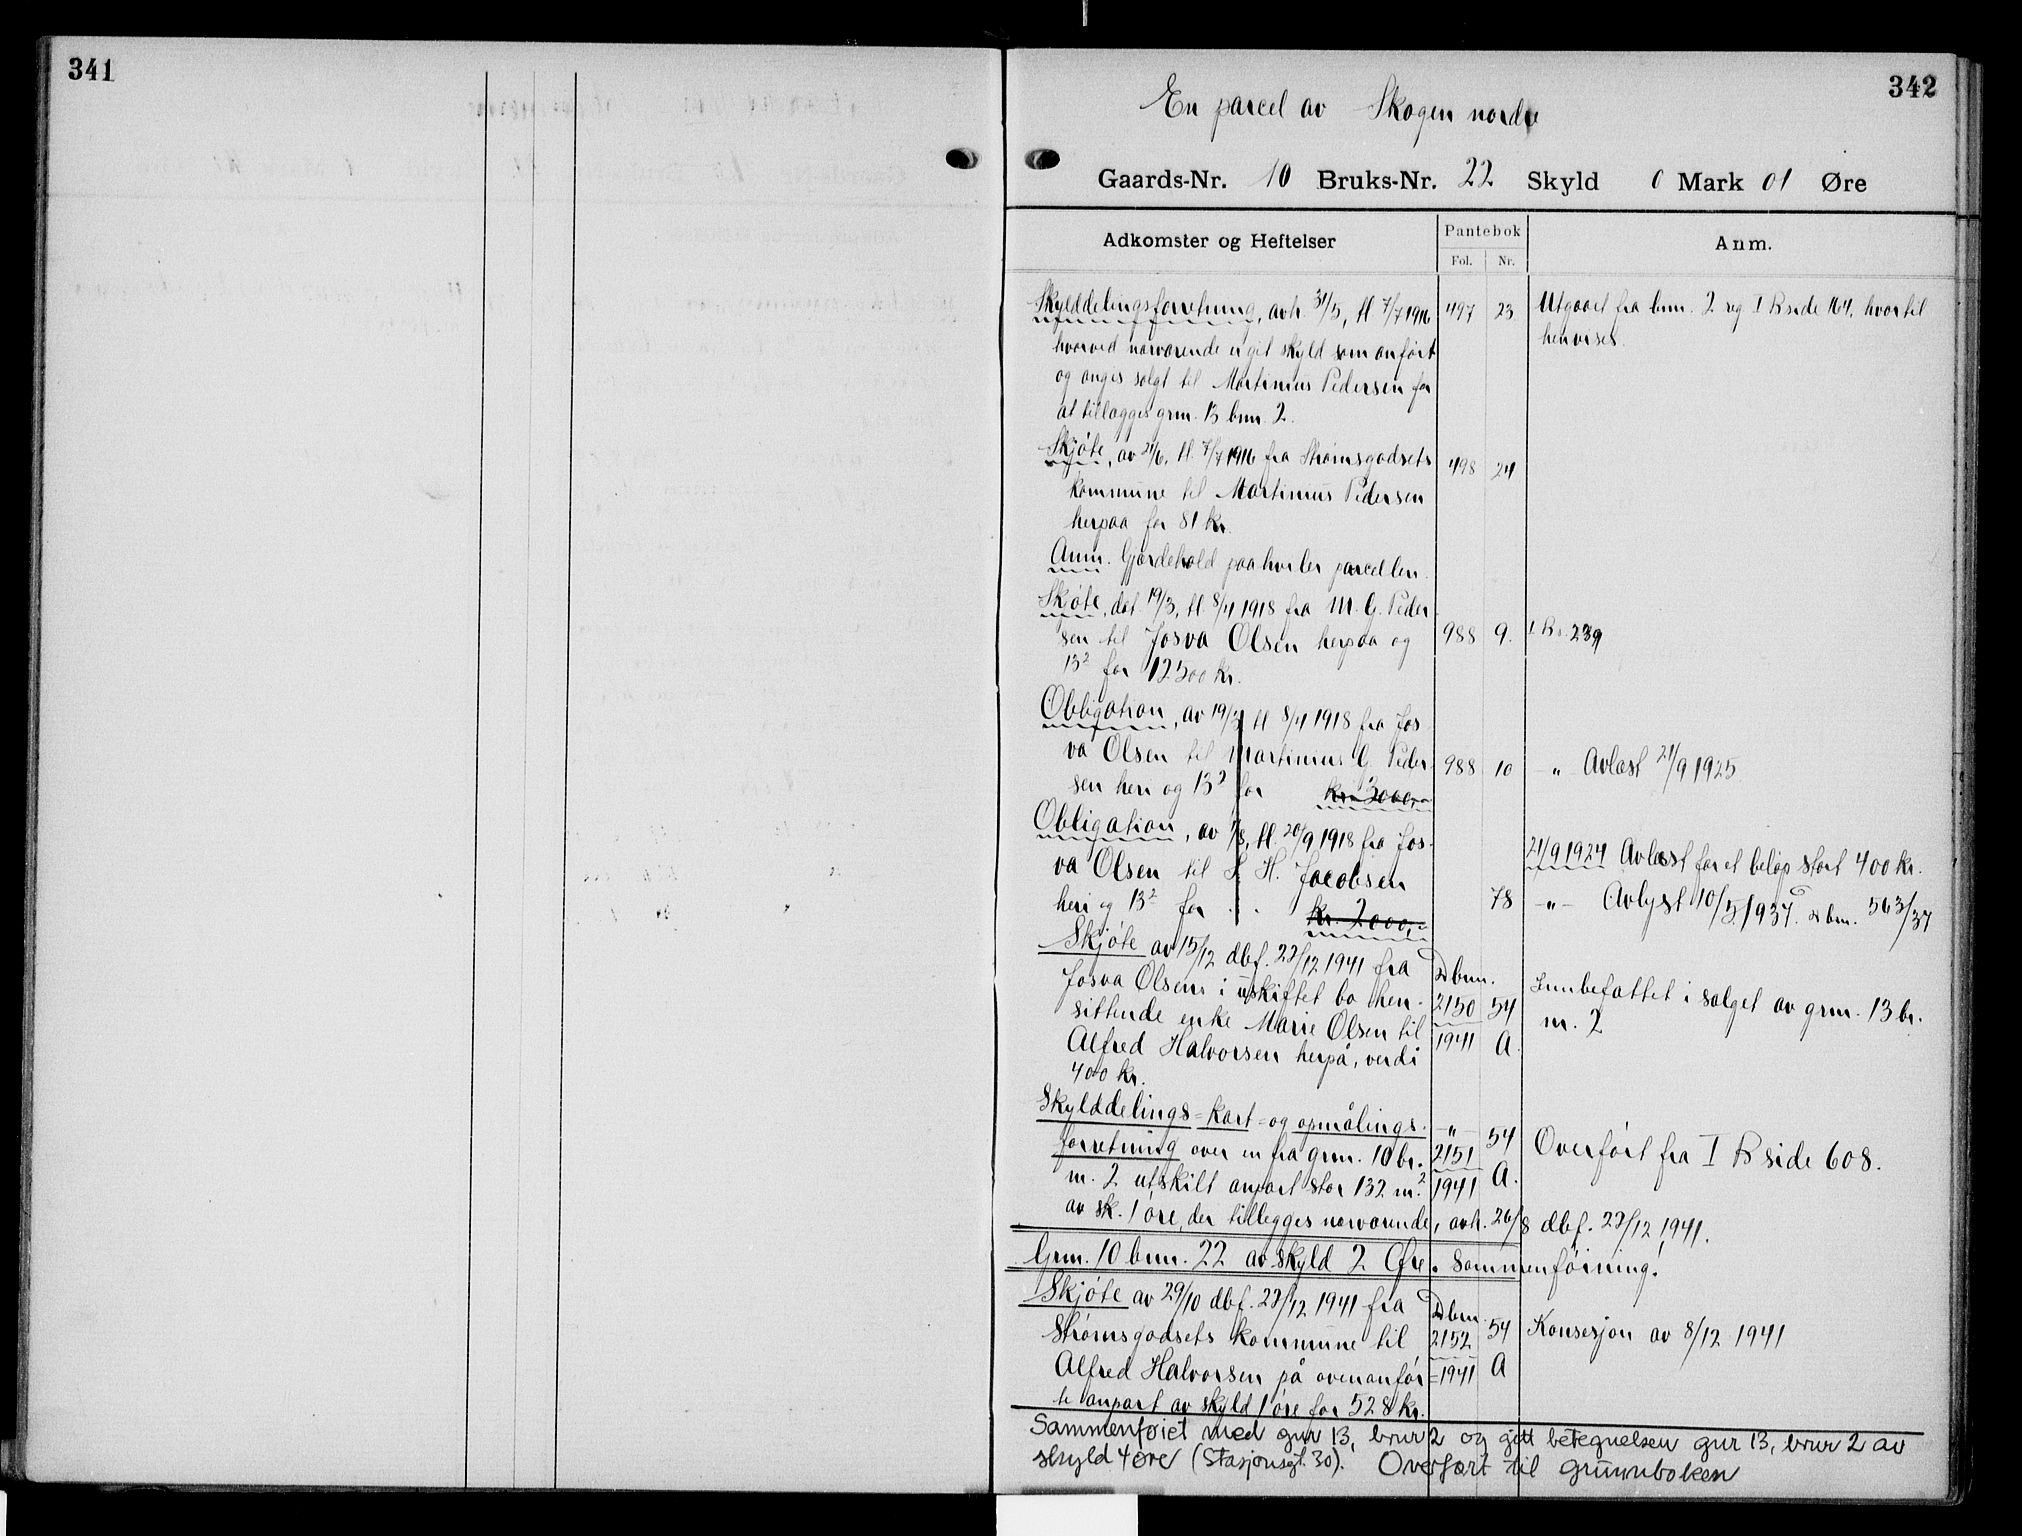 341
342
En parcel av Skogen nordre
Gaards-Nr. 10 Bruks-Nr. 22 Skyld 0 Mark 01 Øre
Adkomster og Heftelser
Pantebok
Fol. Nr.
Anm.
Skylddelingsforretning, avh. 31/5, tl. 7/7 1916 497 23 Utgaaet fra bnr. 2 reg I B side 164, hvortil
hvorved nærværende er git skyld som anført henvises.
og anges solgt til Martinius Pedersen for
at tillægges grnr. 13 bnr. 2.
Skjøte, av 21/6, tl. 7/7 1916 fra Strømsgodsets 498 24
kommune til Martinius Pedersen
herpaa for 81 kr.
Anm. Gjærdehold paahviler parcellen.
Skjøte, dat. 19/3, tl. 8/4 1918 fra M. G. Peder
sen til Josva Olsen herpaa og 988 9. I B s. 239
13² for 12500 kr.
Obligation, av 19/3 tl 8/4 1918 fra Jos
va Olsen til Martinius G. Peder 988 10 — " Avlæst 21/9 1925
sen heri og 13² for kr. 3000,-
Obligation, av 7/8, tl. 20/9 1918 fra Jos-
21/9 1924 Avlæst for et beløp stort 400 kr.
va Olsen til S. H. Jacobsen
heri og 13² for . . kr. 2000,- 78 — " — Avlyst 10/5 1937. Dbnr. 563/37
Skjøte av 15/12 dbf. 22/12 1941 fra
Josva Olsens i uskiftet bo hen- Dbnr. 2150 1941 54 A. Innbefattet i salget av grnr. 13 br.
sittende enke Marie Olsen til nr. 2
Alfred Halvorsen herpå, verdi
400 kr.
Skylddelings- kart- og opmålings- — " — 2151 1941 54 A.
forretning over en fra grnr. 10 br. Overført fra I B side 608.
nr. 2 utskilt anpart stor 132 m.²
av sk. 1 øre, der tillegges nærværende, avh. 26/8 dbf. 22/12 1941.
Grnr. 10 bnr. 22 av skyld 2 Øre. Sammenføining.
Skjøte av 29/10 dbf. 22/12 1941 fra Dbnr.
Strømsgodsets kommune til 2152 54 Konsesjon av 8/12 1941
Alfred Halvorsen på ovenanfør =1941 A
te anpart av skyld 1 øre for 528 kr.
Sammenføiet med gnr 13, bnr 2 og gitt betegnelsen gnr 13, bnr 2 av
skyld 4 øre (Stasjonsgt. 30). Overført til grunnboken